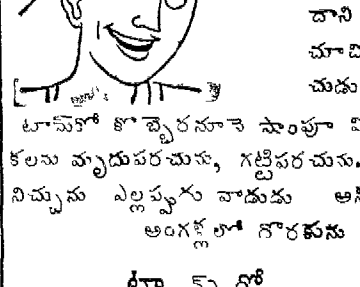 దాని
చూచి
చుడు
టామ్‌కో కొబ్బెరనూనె సాంపూ
కలను మృదుపరచును, గట్టిపరచును.
నిచ్చును ఎల్లప్పుడు వాడుడు
అంగళ్లలో దొరకును
టామ్‌కో